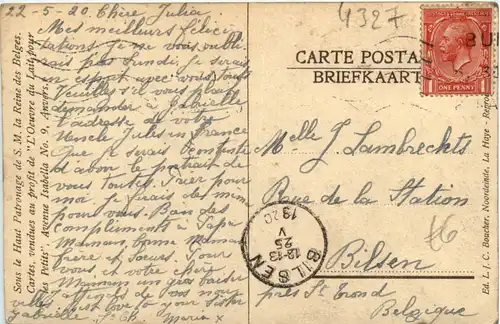 22-5-20 Chère Julia
Mes meilleurs félici-
tations. Je ne vous oubli
rais pas lundi. Je serais
en esprit avec vous tous
Veuilles s'il vous plais
demander à Gabrielle
l'adresse de votre
Uncle Jules in France
Que je serais contente
d'avoir le portrait de
vous toutes. Prier pour
moi je ferais de même
pour vous. Bien des
compliments à Papa
Maman, bonne Maman
frère et sœurs. Pour
vous, et votre chère
Maman un gros baiser
Gabrielle Maria x
Sous le Haut Patronage de S. M. la Reine des Belges.
Cartes, vendues au profit de "L'Oeuvre du Lait pour
les Petits" Avenue Isabella No. 9, Anvers.
4327
CARTE POSTALE
BRIEFKAART
POSTAGE
ONE PENNY
Melle J. Lambrechts
Rue de la Station
Bilsen
près St Trond
Belgique
BILSEN
12-13
25
V
1920
Ed. L. J. C. Boucher, Noordeinde, La Haye